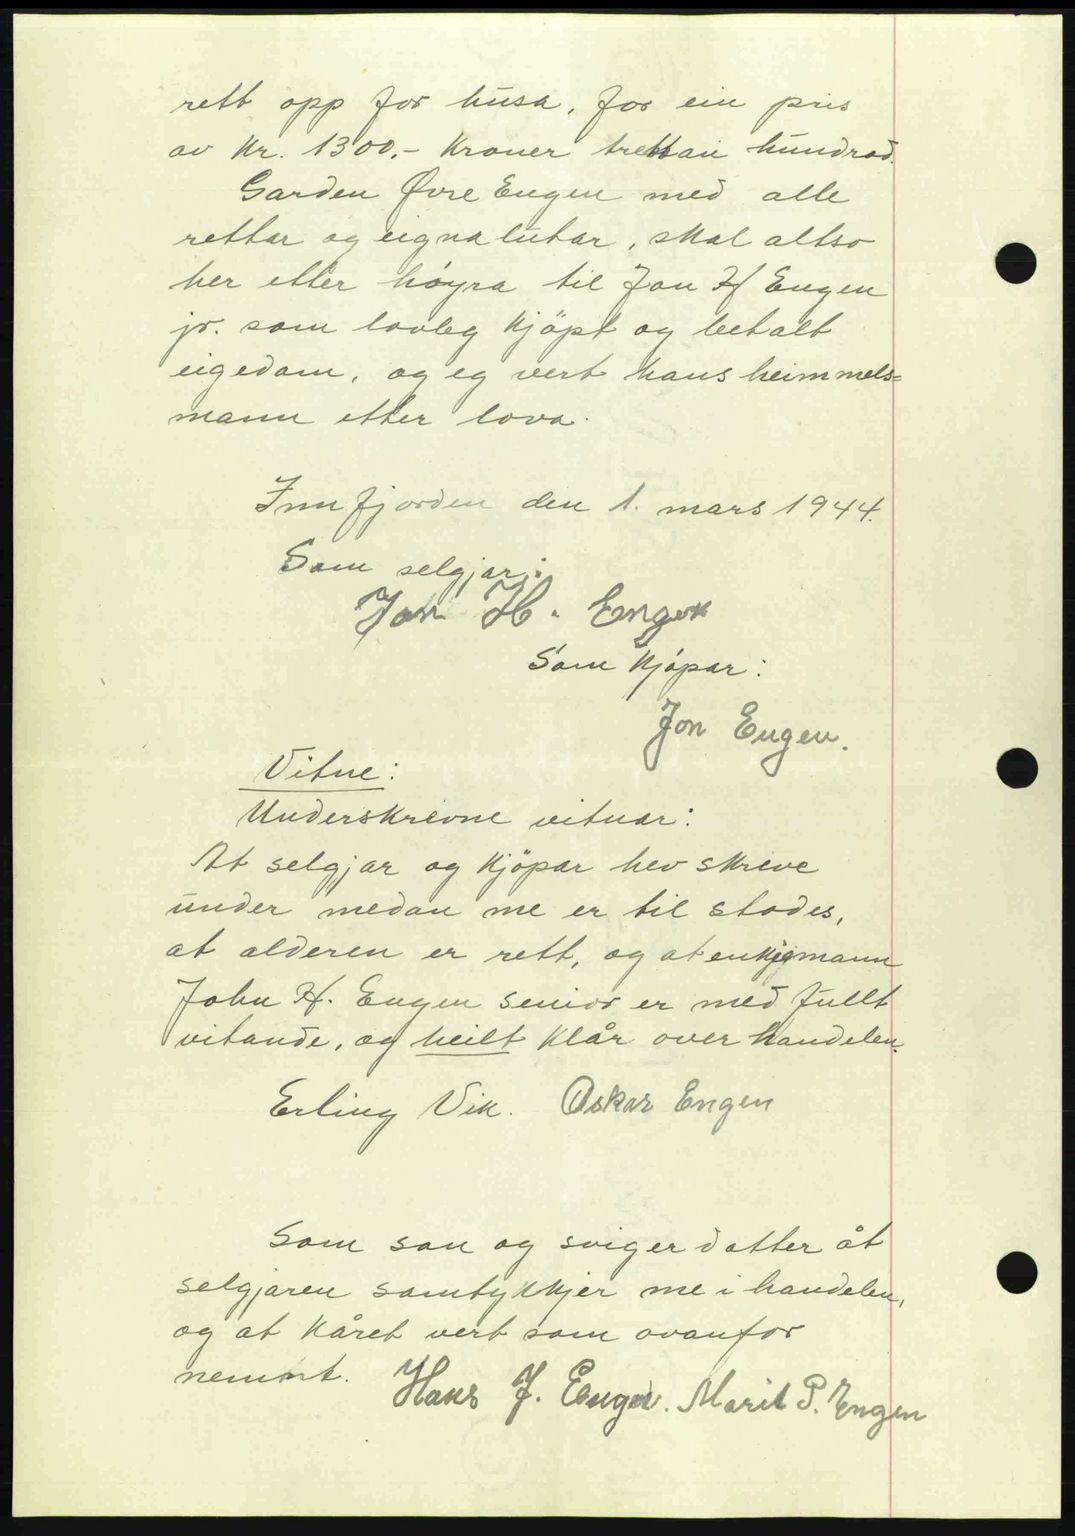 rett opp for husa, for ein pris
av Kr. 1300,- Kroner trettan hundrad.
Garden Øvre Engen med alle
rettar og eignalutar, skal altso
her etter höyra til Jon H Engen
jr. som lovleg kjöpt og betalt
eigedom, og eg vert hans heimmels=
mann etter lova.
Innfjorden den 1. mars 1944.
Som selgjar:
Jon H. Engen
Som Kjöpar:
Jon Engen.
Vitne:
Underskrevne vitnar:
At selgjar og kjöpar hev skreve
under medan me er til stades,
at alderen er rett, og at enkjemann
John H. Engen senior er med fullt
vitande, og heilt klår over handelen.
Erling Vik. Oskar Engen
Som son og svigerdatter åt
selgjaren samtykkjer me i handelen,
og at kåret vert som ovanfor
nemnt. Hans J. Engen. Marit P. Engen